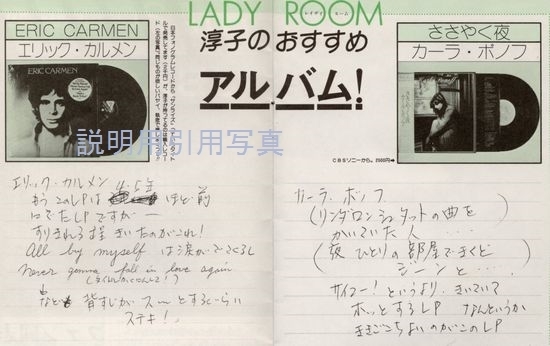 LADY ROOM
レイディ ルーム
淳子のおすすめ
アルバム!
ERIC CARMEN
エリック・カルメン
ERIC CARMEN
説明用引用写真
ささやく夜
カーラ・ボノフ
CBSソニーから。2500円
エリック・カルメン
もうこのLPは 4.5年 ほど前
にでたLPですがー
すりきれる程きいたのがこれ!
All by myself は涙がでてくるし
Never gonna fall in love again
など 背すじがスーとするくらい
ステキ!
カーラ・ボノフ
(リンダロンシュタットの曲を
かいていた人 ‥‥)
(夜ひとりの部屋できくと
ジーンと‥‥)
サイコー!というより、きいていて
ホッとするLP なんというか
ききごこちよいのがこのLP